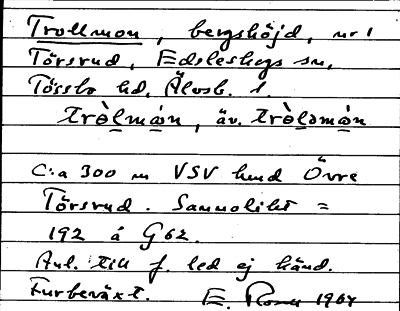 Trollmon, bergshöjd, nr 1
Törsrud, Edsleskogs sn,
Tössbo hd, Älvsb. l.
tròlmán, äv. tròləmán
C:a 300 m VSV hmd Övre
Törsrud. Sannolikt =
192 á G62.
Anl. till f. led ej känd.
Furbeväxt. E. 1964